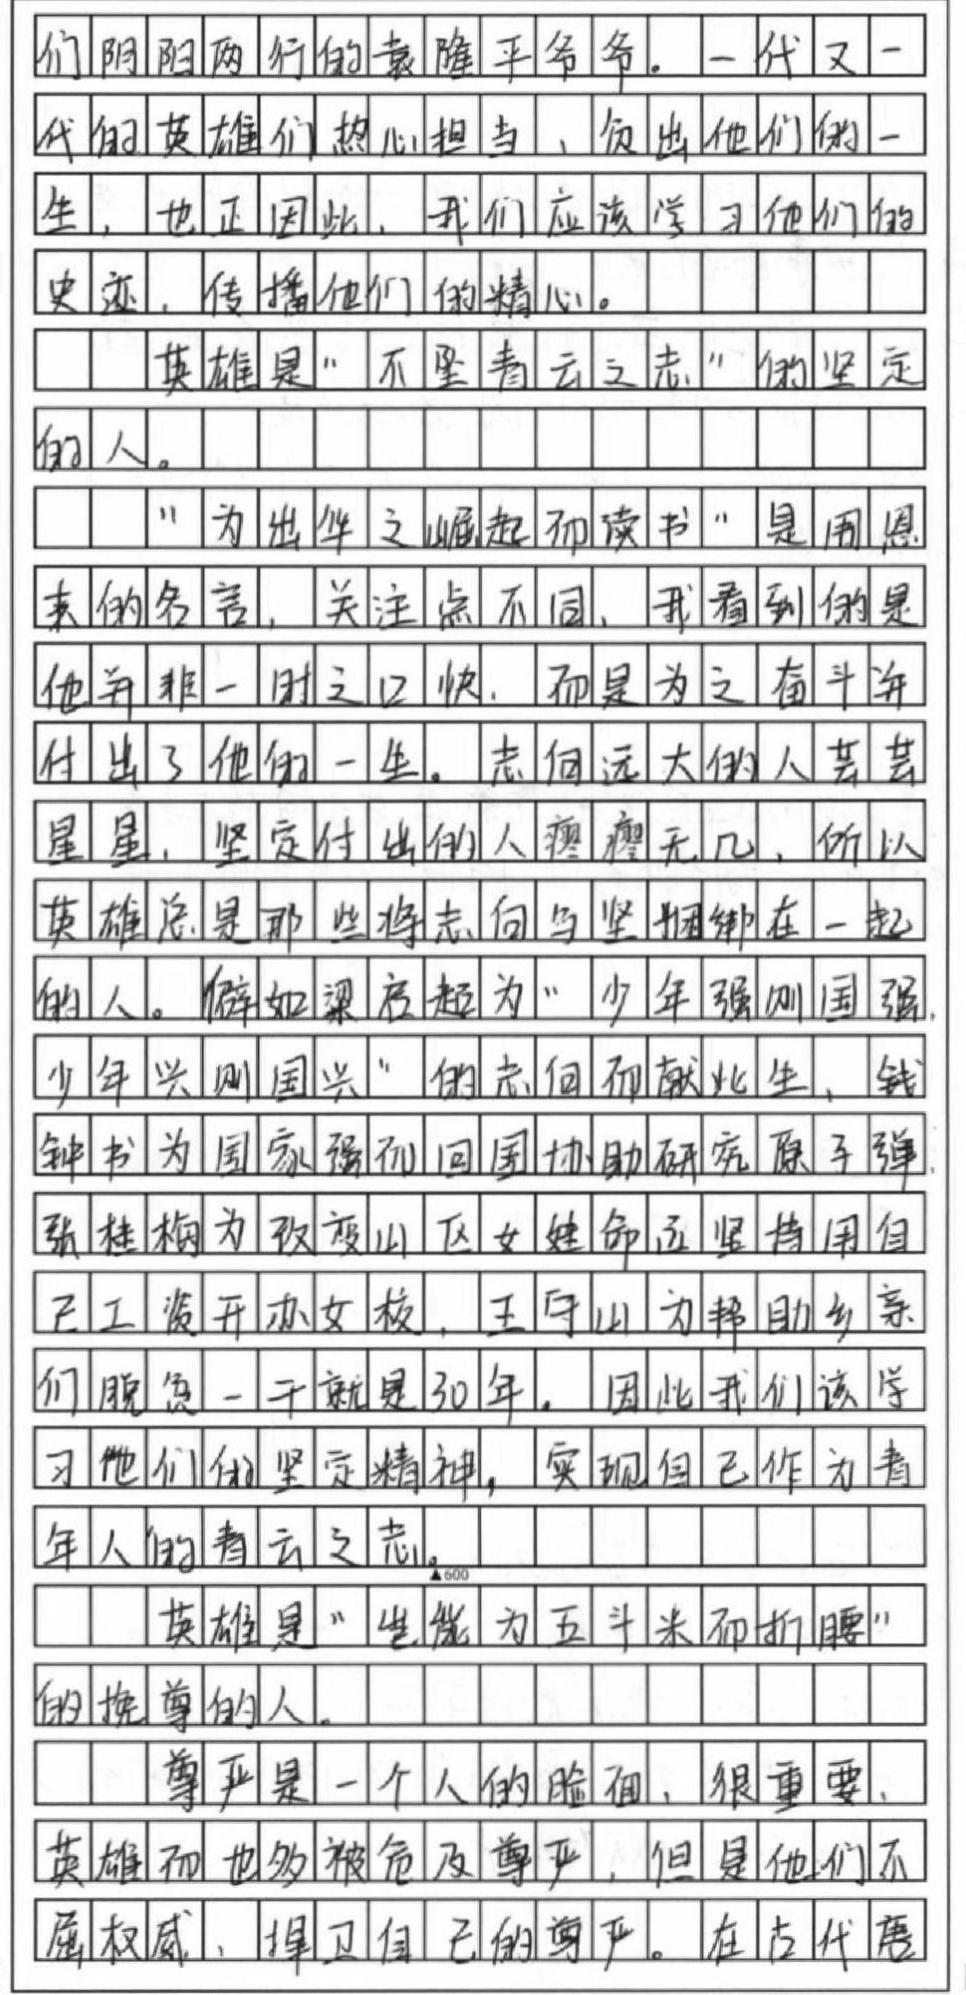 们阴阳两行的袁隆平爷爷。一代又一
代的英雄们热心担当，负出他们的一
生，也正因此，我们应该学习他们的
史迹，传播他们的精心。
英雄是"不坠青云之志"的坚定
的人。
"为出华之崛起而读书"是周恩
来的名言，关注点不同，我看到的是
他并非一时之口快，而是为之奋斗并
付出了他的一生。志向远大的人芸芸
星星，坚定付出的人寥寥无几，所以
英雄总是那些将志向与坚捆绑在一起
的人。僻如梁启超为"少年强则国强，
少年兴则国兴"的志向而献此生，钱
钟书为国家强而回国协助研究原子弹，
张桂梅为改变山区女娃命运坚持用自
己工资开办女校，王守山为帮助乡亲
们脱负一干就是30年。因此我们该学
习他们的坚定精神，实现自己作为青
年人的青云之志。
▲600
英雄是"岂能为五斗米而折腰"
的挽尊的人。
尊严是一个人的脸面，很重要，
英雄而也多被危及尊严，但是他们不
屈权威，捍卫自己的尊严。在古代唐